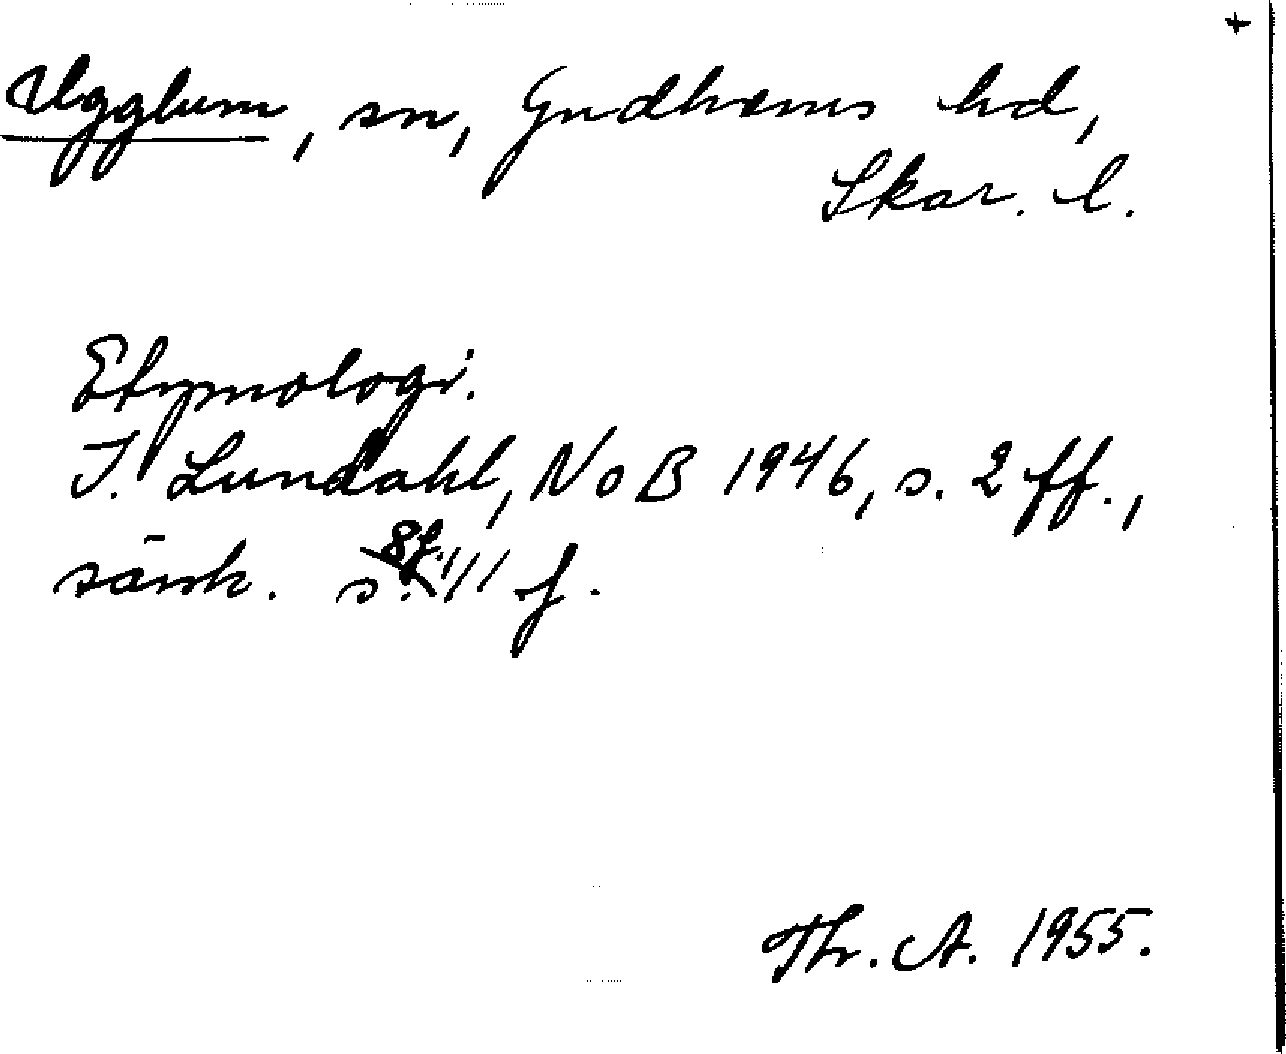 +
Ugglum, sn, Gudhems hd,
Skar. l.
Etymologi.
I. Lundahl, NoB 1946, s. 2 ff.,
särsk. s. 8f., 11 f.
Th. A. 1955.